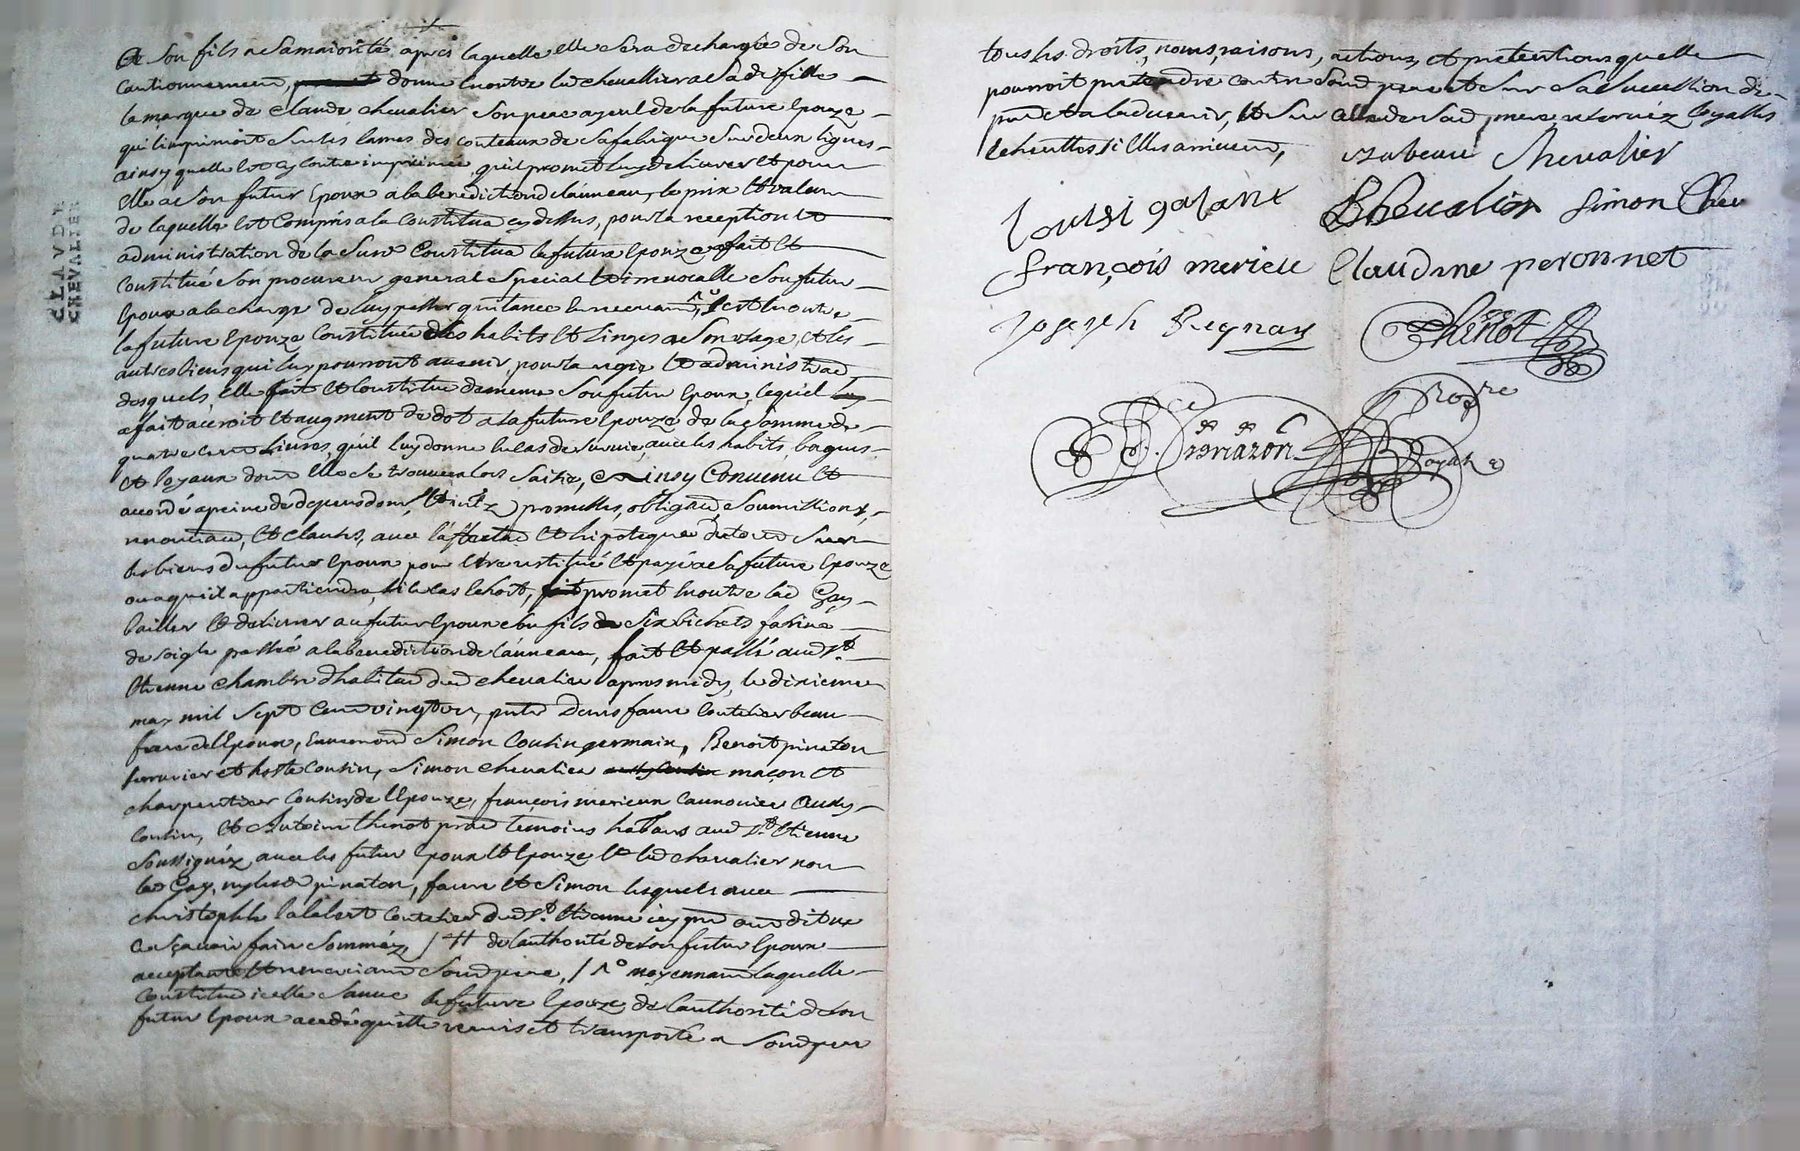 CLAVDE
CHEVALIER
et son fils a sa maiorité, apres laquelle elle sera dechargée de son
cautionnement, donne en outre led chevallier a sad fille
la marque de Claude chevalier son pere ayeul de la future epouze
qu'il imprimoit sur les lames des couteaux de sa fabrique sur deux lignes
ainsy quelle est cy contre imprimée, quil promet luy delivrer et pour
elle a son futur Epoux a la benediction de l'anneau, le prix et valeur
de laquelle est compris a la constitu͠on cy dessus, pour la reception et
administration de la sus͠d constitu͠on la future epouze a fait et
constitué son procureur general special et irrevocable son futur
Epoux a la charge de luy passer quittance en recevant, / N° et en outre
la future epouze constitue les habits et linges a son usage, et les
autres biens qui luy pourront avenir, pour la regie et administra͠on
desquels, elle fait et constitue de meme son futur Epoux, lequel
a fait acroit et augment de dot a la future epouze de la somme de
quatre cent Livres, quil luy donne en cas de survie, avec les habits, bagues
et joyaux dont elle se trouvera lors saisie, Ainsy Convenu et
accordé a peine de depens dom, et int͠z promesses, obliga͠on, soumissions,
renontia͠on, et clauses, avec l'affecta͠on et hipoteque de tous
les biens du futur epoux pour etre restitué et payé a la future epouze
ou a qui il appartiendra, si le cas echoit, promet en outre lad Gay
bailler et delivrer au futur epoux son fils six bichets farine
de soigle passée a la benediction de l'anneau, fait et passé aud St
Etienne chambre d'habita͠on dud chevalier apres midy, le dixieme
may mil sept cent vingt , pnts Denis faure coutelier beau
frere de l'Epoux, simon cousin germain, Benoit pinaton
serrurier et hoste cousin, simon chevalier maçon et
charpentier cousin de l'Epouze, françois merieux canonier aussy
cousin, et Antoine thenot prat͠ien temoins habitans aud St Etienne
soussignéz avec les futur epoux et epouze et led chevalier non
lad Gay, pinaton, faure et simon lesquels avec
christophle lalabert coutelier dud St Etienne icy pnt ont dit ne
le sçavoir faire sommés, / # de l'authorité de son futur epoux
acceptant et remerciant sond pere, / N° moyennant laquelle
constitu͠on icelle sauve la future epouze de l'authorité de son
futur epoux a cedé quitté remis et transporté a sond pere
tous les droits, noms, raisons, actions, et pretentions quelle
pourroit pretendre contre sond pere et sur sa succession de
pnt et a l'advenir, et sur celle de sad mere reservéz loyalles
echeuttes si elles arrivent, izabeau Chevalier
Louisi galant Chevalier simon Chev
françois merieu Claudine peronnet
Joseph Regnay Thenot